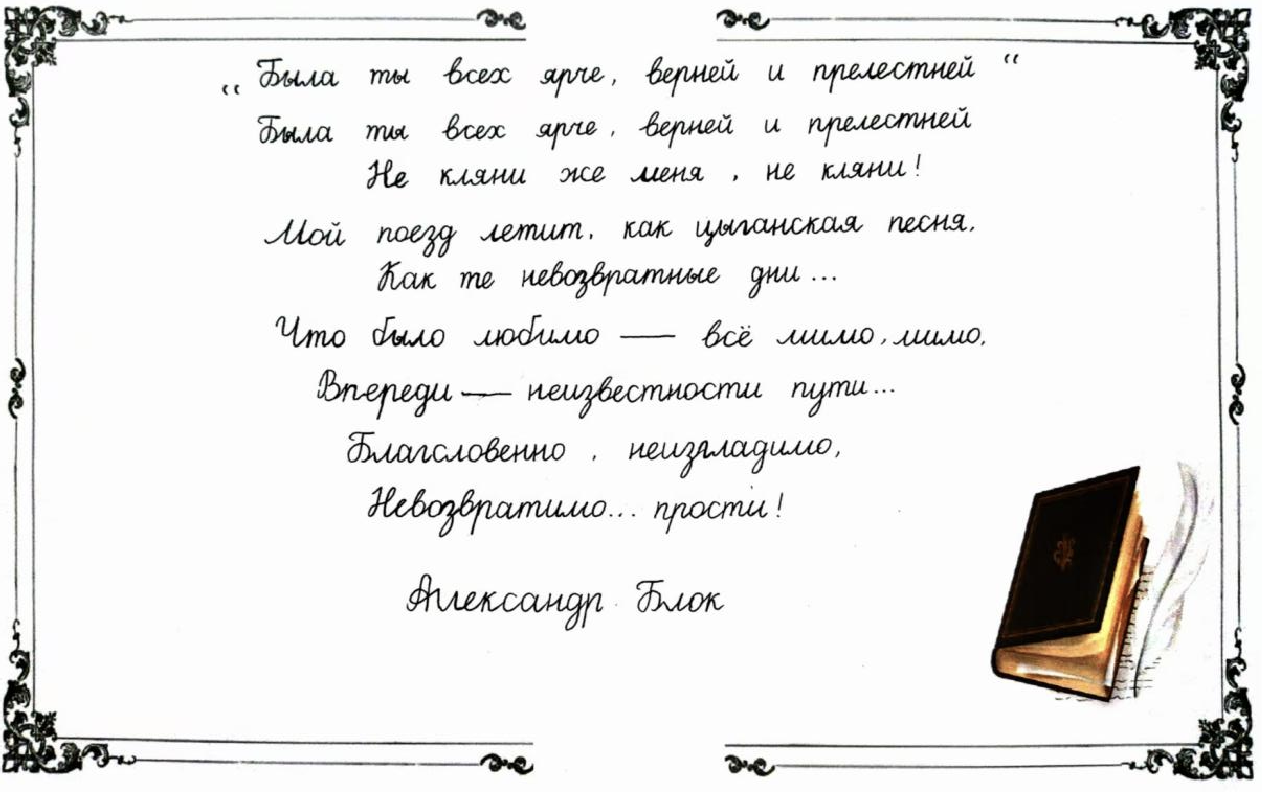 „Была ты всех ярче, верней и прелестней“
Была ты всех ярче, верней и прелестней
Не кляни же меня, не кляни!
Мой поезд летит, как цыганская песня,
Как те невозвратные дни...
Что было любимо — всё мимо, мимо,
Впереди — неизвестности пути...
Благсловенно, неизгладимо,
Невозвратимо... прости!
Александр Блок